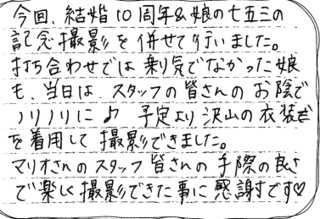 今回、結婚10周年&娘の七五三の
記念撮影を併せて行いました。
打ち合わせでは乗り気でなかった娘
も、当日はスタッフの皆さんのお陰で
ノリノリに♪予定より沢山の衣装を
を着用して撮影できました。
マリオさんのスタッフ皆さんの手際の良さ
で楽しく撮影できた事に感謝です♡